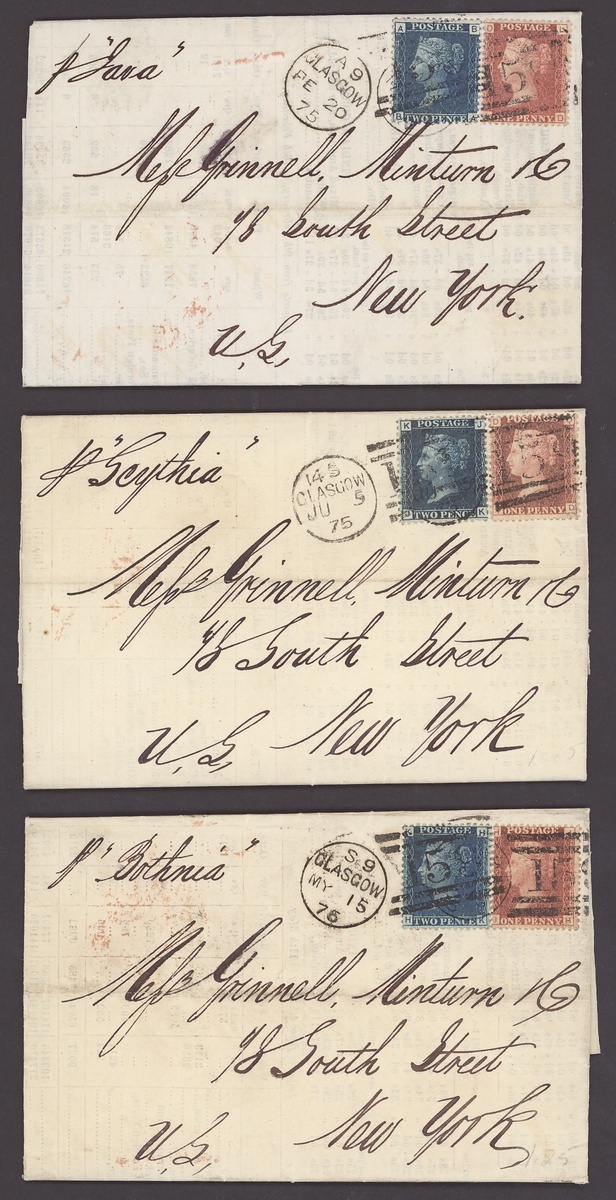 p "Java"
A 9
GLASGOW
FE 20
75
POSTAGE
TWO PENCE
ONE PENNY
Messrs Grinnell, Minturn & Co
78 South Street
New York.
U.S,
p "Scythia"
145
GLASGOW
JU 5
75
POSTAGE
TWO PENCE
POSTAGE
ONE PENNY
Messrs Grinnell, Minturn & Co
78 South Street
New York
U.S,
p "Bothnia"
S 9
GLASGOW
MY 15
76
POSTAGE
TWO PENCE
POSTAGE
ONE PENNY
Messrs Grinnell, Minturn & Co
78 South Street
New York
U.S,